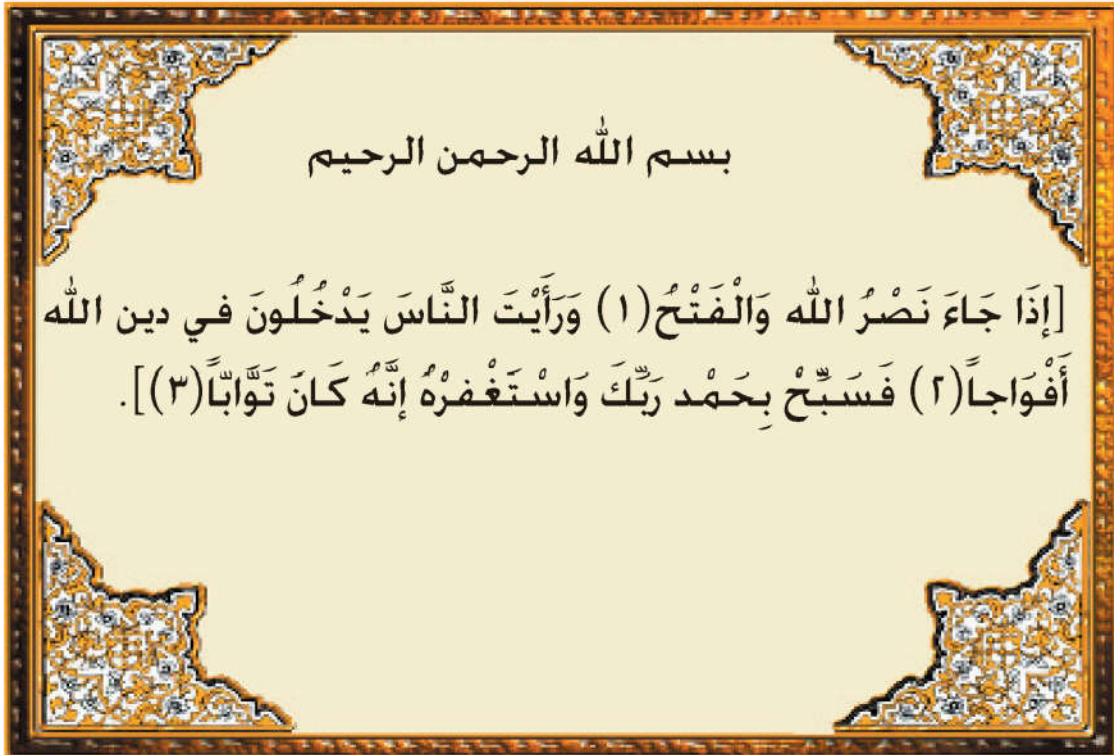 بسم الله الرحمن الرحيم
[إذَا جَاءَ نَصْرُ الله وَالْفَتْحُ(١) وَرَأَيْتَ النَّاسَ يَدْخُلُونَ في دين الله
أَفْوَاجاً(٢) فَسَبِّحْ بِحَمْد رَبِّكَ وَاسْتَغْفرْهُ إنَّهُ كَانَ تَوَّاباً(٣)].